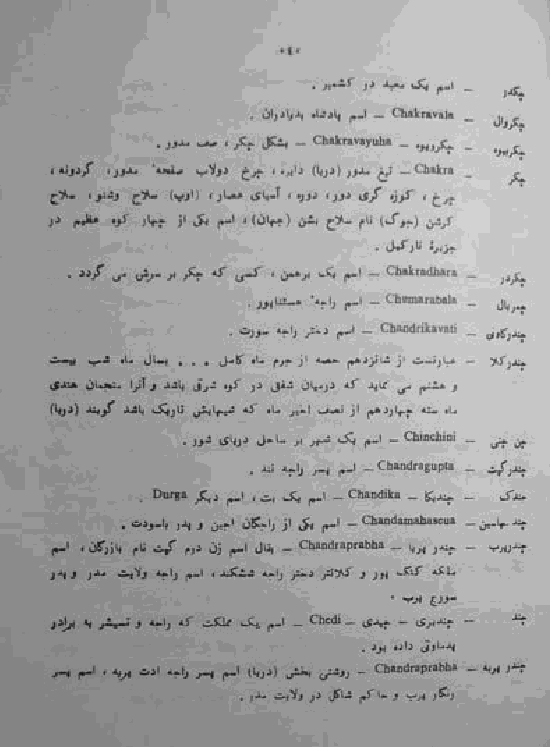 ٤٠
چکدر — اسم یک معبد در کشمیر .
چکروال — Chakravala — اسم پادشاه بدیادران .
چکربیوه — چکرویوه — Chakravayuha — بشکل چکر ، صف مدور .
چکر — Chakra — تیغ مدور (دریا) دایره ، چرخ دولاب صفحه مدور ، گردونه ،
چرخ ، کوزه گری دور ، دوره ، آسیای عصار ، (اوپ) سلاح وشنو ، سلاح
کرشن (جوگ) نام سلاح بشن (جهان) ، اسم یکی از چهار کوه عظیم در
جزیرهٔ نارکیل .
چکردر — Chakradhara — اسم یک برهمن ، کسی که چکر بر سرش می گردد .
چمربال — Chamarabala — اسم راجه هستناپور .
چندرکاوتی — Chandrikavati — اسم دختر راجه سورت .
چندرکلا — عبارتست از شانزدهم حصه از جرم ماه کامل . . . بسال ماه شب بیست
و هشتم می نماید که درمیان شفق در کوه شرق باشد و آنرا منجمان هندی
ماه سته چهاردهم از نصف اخیر ماه که شبهایش تاریک باشد گویند (دریا)
چن چنی — Chinchini — اسم یک شهر بر ساحل دریای شور .
چندرگپت — Chandragupta — اسم پسر راجه نند .
چندک — چندیکا — Chandika — اسم یک بت ، اسم دیگر Durga .
چند مهاسین — Chandamahascua — اسم یکی از راجگان اجین و پدر باسودت .
چندرپرب — چندر پربا — Chandraprabha — بنال اسم زن درم گپت نام بازرگان ، اسم
ملکه کنک پور و کلانتر دختر راجه ششکند ، اسم راجه ولایت مدر و پدر
سورج پرب .
چند — چندیری — چیدی — Chedi — اسم یک مملکت که راجه و تسیشر به برادر
داده بود .
چندر پربه — Chandraprabha — روشنی بخش (دریا) اسم پسر راجه ادت پربه ، اسم پسر
رنگار پرب و حاکم شاکل در ولایت مدر .